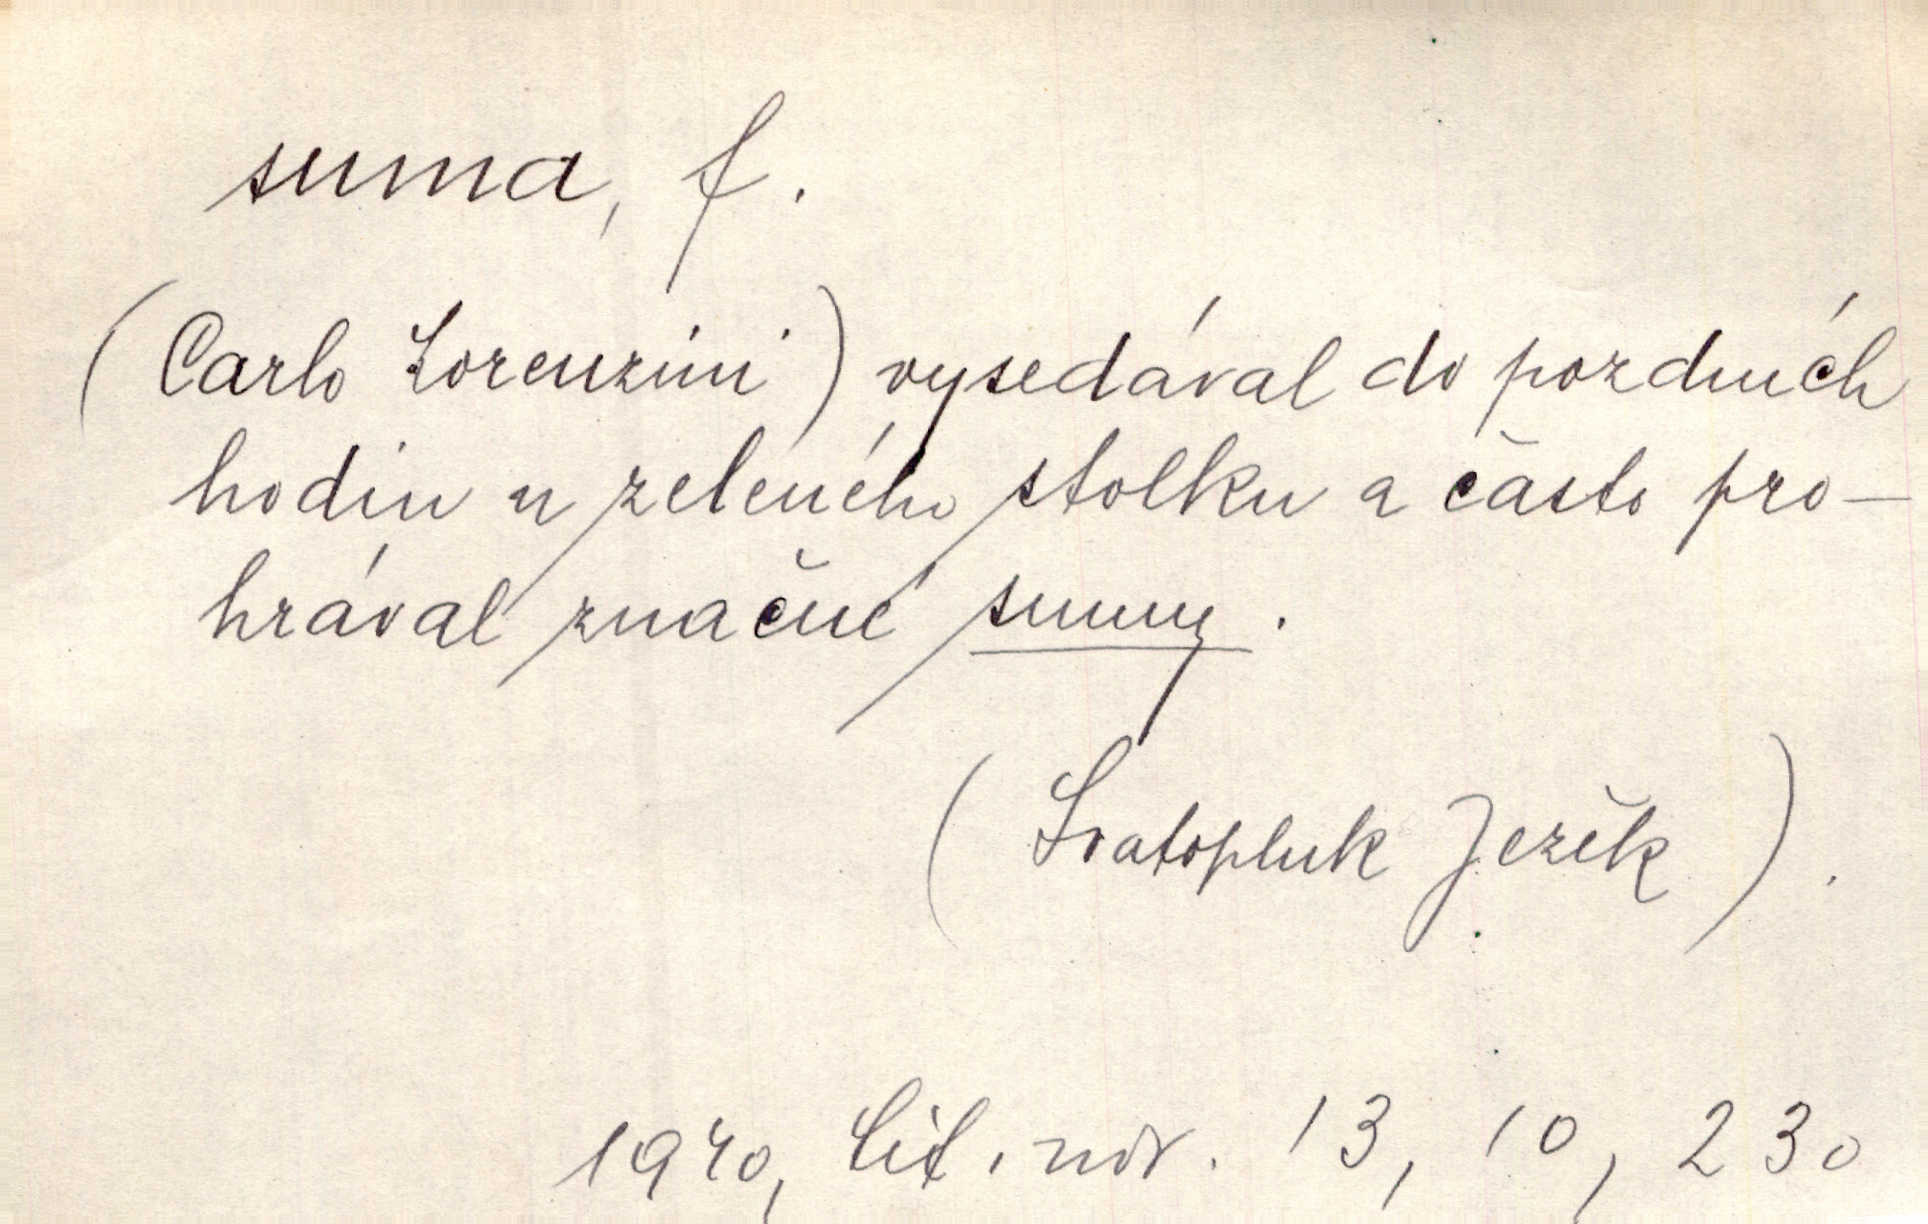 suma, f.
(Carlo Lorenzini) vysedával do pozdních
hodin u zeleného stolku a často pro-
hrával značné sumy.
(Svatopluk Ježek).
1940, Lit. nov. 13, 10, 230